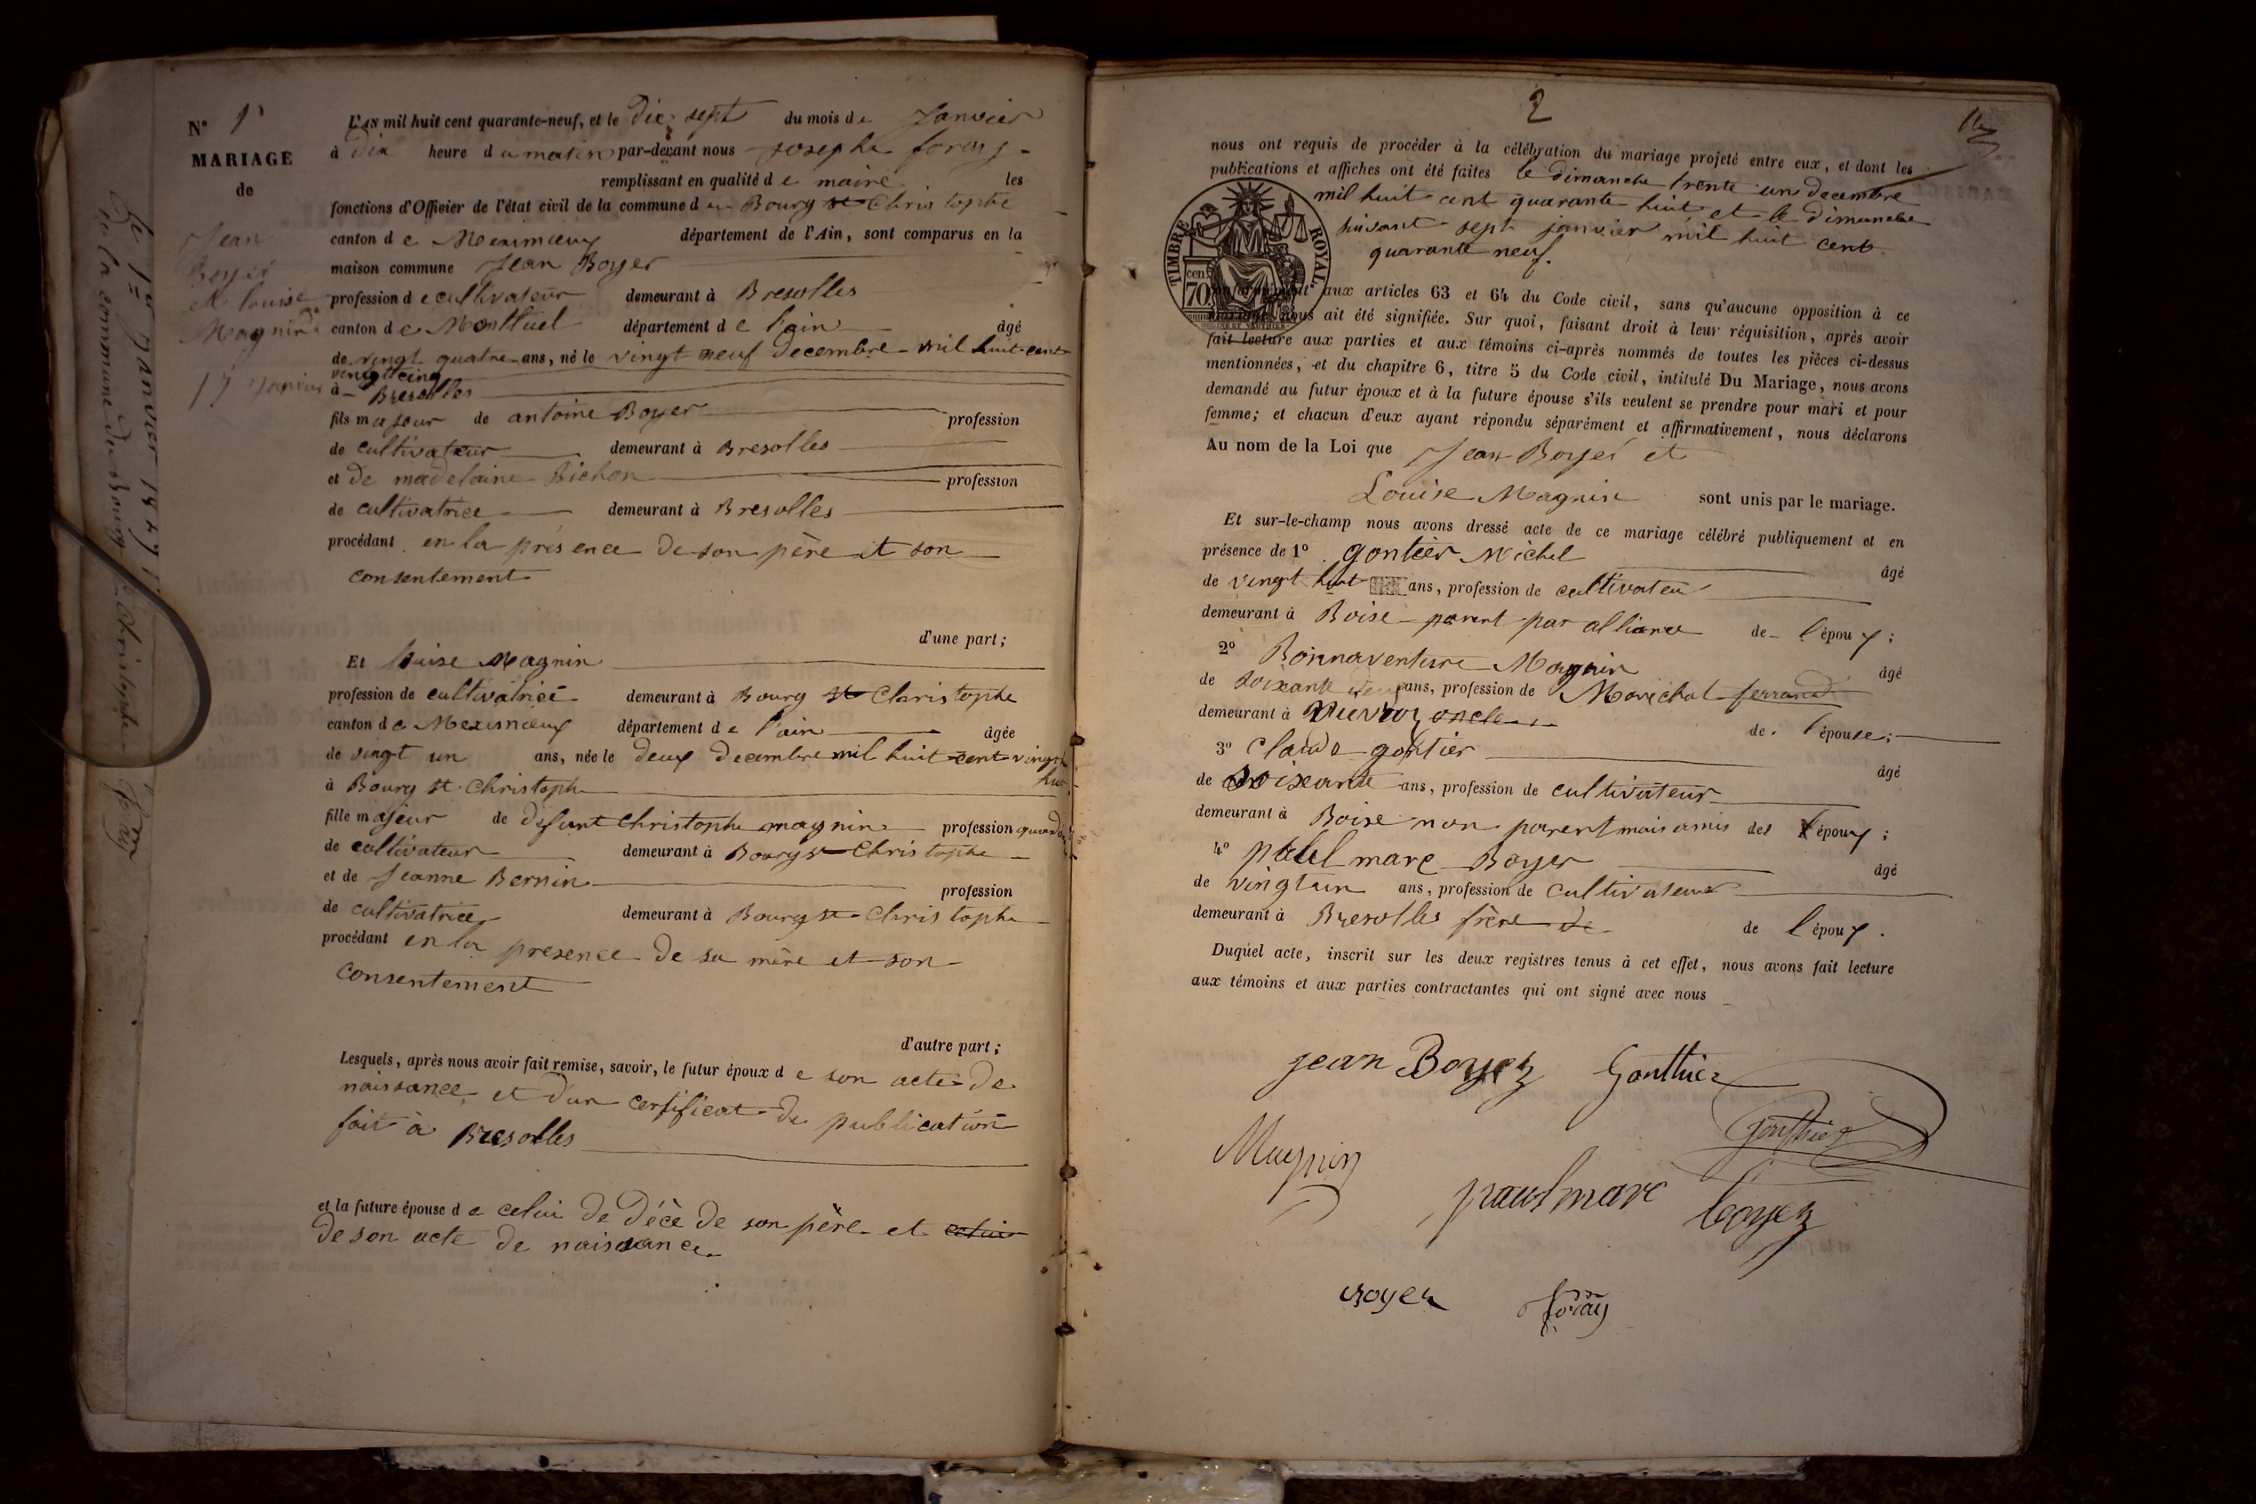 N° 1
MARIAGE
de
Jean
Boyer
et louise
Magnin
17 Janvier
L'AN mil huit cent quarante-neuf, et le Dix sept du mois de Janvier
à Dix heure du matin par-devant nous Josephe foray
remplissant en qualité de maire les
fonctions d'Officier de l'état civil de la commune du Bourg st Christophe
canton de Meximieux département de l'Ain, sont comparus en la
maison commune Jean Boyer
profession de cultivateur demeurant à Bresolles
canton de Montluel département de l'ain âgé
de vingt quatre ans, né le vingt neuf Decembre mil huit cent
vingt cinq
à Bresolles
fils majeur de antoine Boyer profession
de cultivateur demeurant à Bresolles
et de madelaine Bichon profession
de cultivatrice demeurant à Bresolles
procédant en la présence de son père et son
consentement
d'une part;
Et luise Magnin
profession de cultivatrice demeurant à Bourg st Christophe
canton de Meximieux département de l'ain âgée
de vingt un ans, née le deux Decembre mil huit cent vingt
huit
à Bourg st Christophe
fille majeur de défunt Christophe magnin profession quand
de cultivateur demeurant à Bourg st Christophe
et de Jeanne Bernin profession
de cultivatrice demeurant à Bourg st Christophe
procédant en la presence de sa mère et son
consentement
d'autre part;
Lesquels, après nous avoir fait remise, savoir, le futur époux de son acte de
naissance et d'un certificat de publication
fait à Bresolles
et la future épouse de celui de décè de son père et celui
de son acte de naissance
Le 1er janvier 1849
de la commune du Bourg st christophe
foray
2
nous ont requis de procéder à la célébration du mariage projeté entre eux, et dont les
publications et affiches ont été faites le dimanche trente un decembre
mil huit cent quarante huit et le dimanche
suivant sept janvier mil huit cent
quarante neuf.
TIMBRE ROYAL
cen. 70
aux articles 63 et 64 du Code civil, sans qu'aucune opposition à ce
mariage nous ait été signifiée. Sur quoi, faisant droit à leur réquisition, après avoir
fait lecture aux parties et aux témoins ci-après nommés de toutes les pièces ci-dessus
mentionnées, et du chapitre 6, titre 5 du Code civil, intitulé Du Mariage, nous avons
demandé au futur époux et à la future épouse s'ils veulent se prendre pour mari et pour
femme; et chacun d'eux ayant répondu séparément et affirmativement, nous déclarons
Au nom de la Loi que Jean Boyer et
Louise Magnin sont unis par le mariage.
Et sur-le-champ nous avons dressé acte de ce mariage célébré publiquement et en
présence de 1° gontier Michel âgé
de vingt huit ans, profession de cultivateur
demeurant à Boise parent par alliance de l'époux;
2° Bonnaventure Magnin âgé
de Soixante deux ans, profession de Marichal ferrand
demeurant à oncle de l'épouse;
3° Claude gontier âgé
de soixante ans, profession de cultivateur
demeurant à Boise non parent mais amis des époux;
4° paul marc Boyer âgé
de vingt un ans, profession de cultivateur
demeurant à Bresolles frère de de l'époux.
Duquel acte, inscrit sur les deux registres tenus à cet effet, nous avons fait lecture
aux témoins et aux parties contractantes qui ont signé avec nous
jean Boyer Gonthier
Gonthier
Magnin
paul marc boyer
Boyer foray